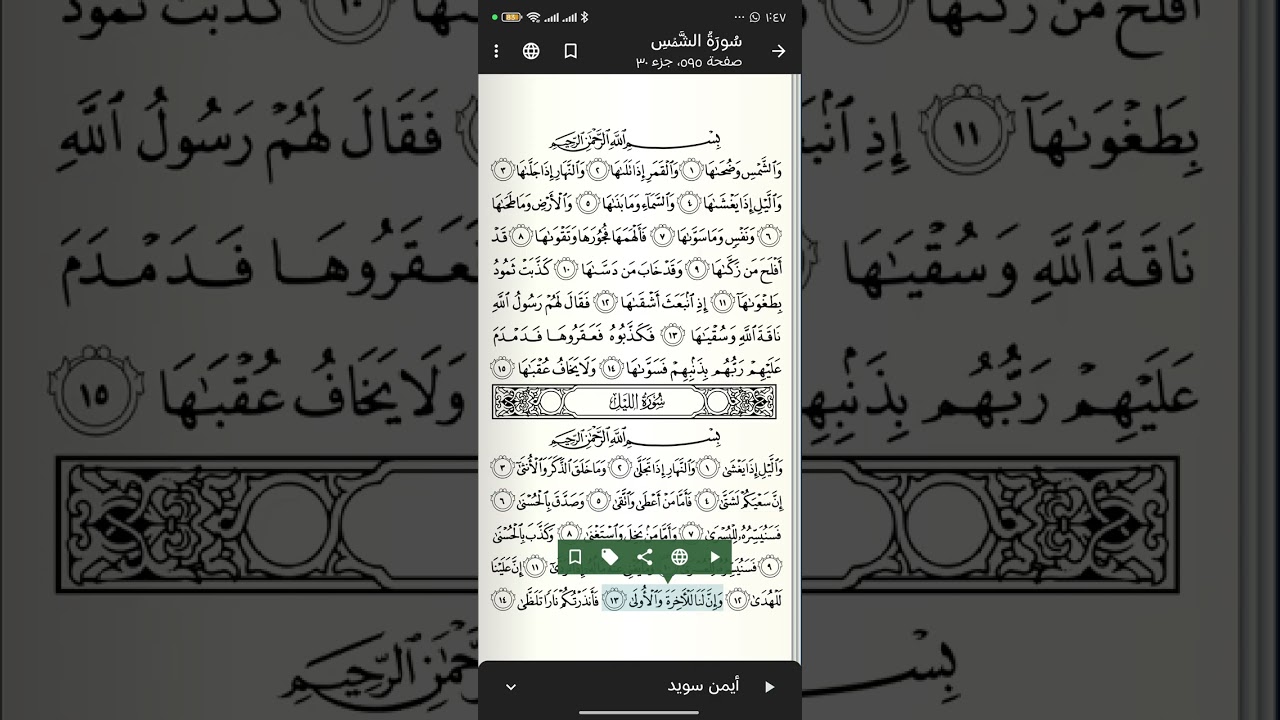 ١:٤٧
83
سُورَةُ الشَّمْسِ
صفحة ٥٩٥، جزء ٣٠
بِسْمِ ٱللَّهِ ٱلرَّحْمَٰنِ ٱلرَّحِيمِ
وَٱلشَّمْسِ وَضُحَىٰهَا ١ وَٱلْقَمَرِ إِذَا تَلَىٰهَا ٢ وَٱلنَّهَارِ إِذَا جَلَّىٰهَا ٣
وَٱلَّيْلِ إِذَا يَغْشَىٰهَا ٤ وَٱلسَّمَآءِ وَمَا بَنَىٰهَا ٥ وَٱلْأَرْضِ وَمَا طَحَىٰهَا
٦ وَنَفْسٍ وَمَا سَوَّىٰهَا ٧ فَأَلْهَمَهَا فُجُورَهَا وَتَقْوَىٰهَا ٨ قَدْ
أَفْلَحَ مَن زَكَّىٰهَا ٩ وَقَدْ خَابَ مَن دَسَّىٰهَا ١٠ كَذَّبَتْ ثَمُودُ
بِطَغْوَىٰهَآ ١١ إِذِ ٱنۢبَعَثَ أَشْقَىٰهَا ١٢ فَقَالَ لَهُمْ رَسُولُ ٱللَّهِ
نَاقَةَ ٱللَّهِ وَسُقْيَٰهَا ١٣ فَكَذَّبُوهُ فَعَقَرُوهَا فَدَمْدَمَ
عَلَيْهِمْ رَبُّهُم بِذَنۢبِهِمْ فَسَوَّىٰهَا ١٤ وَلَا يَخَافُ عُقْبَٰهَا ١٥
سُورَةُ اللَّيْلِ
بِسْمِ ٱللَّهِ ٱلرَّحْمَٰنِ ٱلرَّحِيمِ
وَٱلَّيْلِ إِذَا يَغْشَىٰ ١ وَٱلنَّهَارِ إِذَا تَجَلَّىٰ ٢ وَمَا خَلَقَ ٱلذَّكَرَ وَٱلْأُنثَىٰٓ ٣
إِنَّ سَعْيَكُمْ لَشَتَّىٰ ٤ فَأَمَّا مَنْ أَعْطَىٰ وَٱتَّقَىٰ ٥ وَصَدَّقَ بِٱلْحُسْنَىٰ ٦
فَسَنُيَسِّرُهُۥ لِلْيُسْرَىٰ ٧ وَأَمَّا مَنۢ بَخِلَ وَٱسْتَغْنَىٰ ٨ وَكَذَّبَ بِٱلْحُسْنَىٰ
٩ ١١ إِنَّ عَلَيْنَا
لَلْهُدَىٰ ١٢ وَإِنَّ لَنَا لَلْءَاخِرَةَ وَٱلْأُولَىٰ ١٣ فَأَنذَرْتُكُمْ نَارًا تَلَظَّىٰ ١٤
أيمن سويد